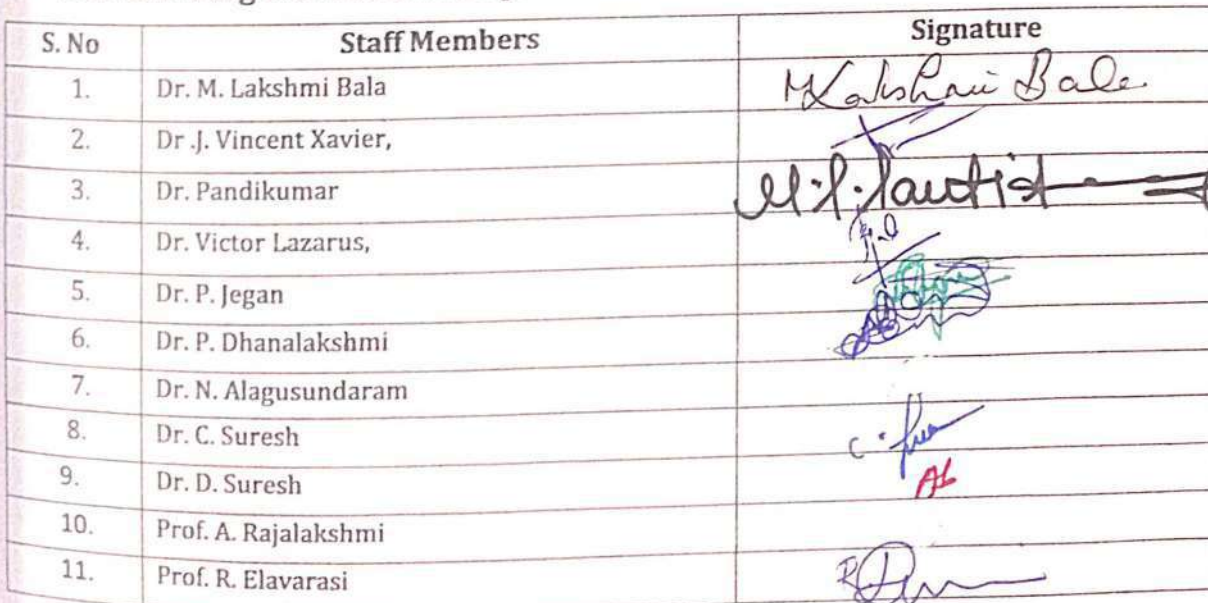 S. No Staff Members Signature
1. Dr. M. Lakshmi Bala M Lakshmi Bala
2. Dr .J. Vincent Xavier,
3. Dr. Pandikumar
4. Dr. Victor Lazarus,
5. Dr. P. Jegan
6. Dr. P. Dhanalakshmi
7. Dr. N. Alagusundaram
8. Dr. C. Suresh
9. Dr. D. Suresh
10. Prof. A. Rajalakshmi
11. Prof. R. Elavarasi